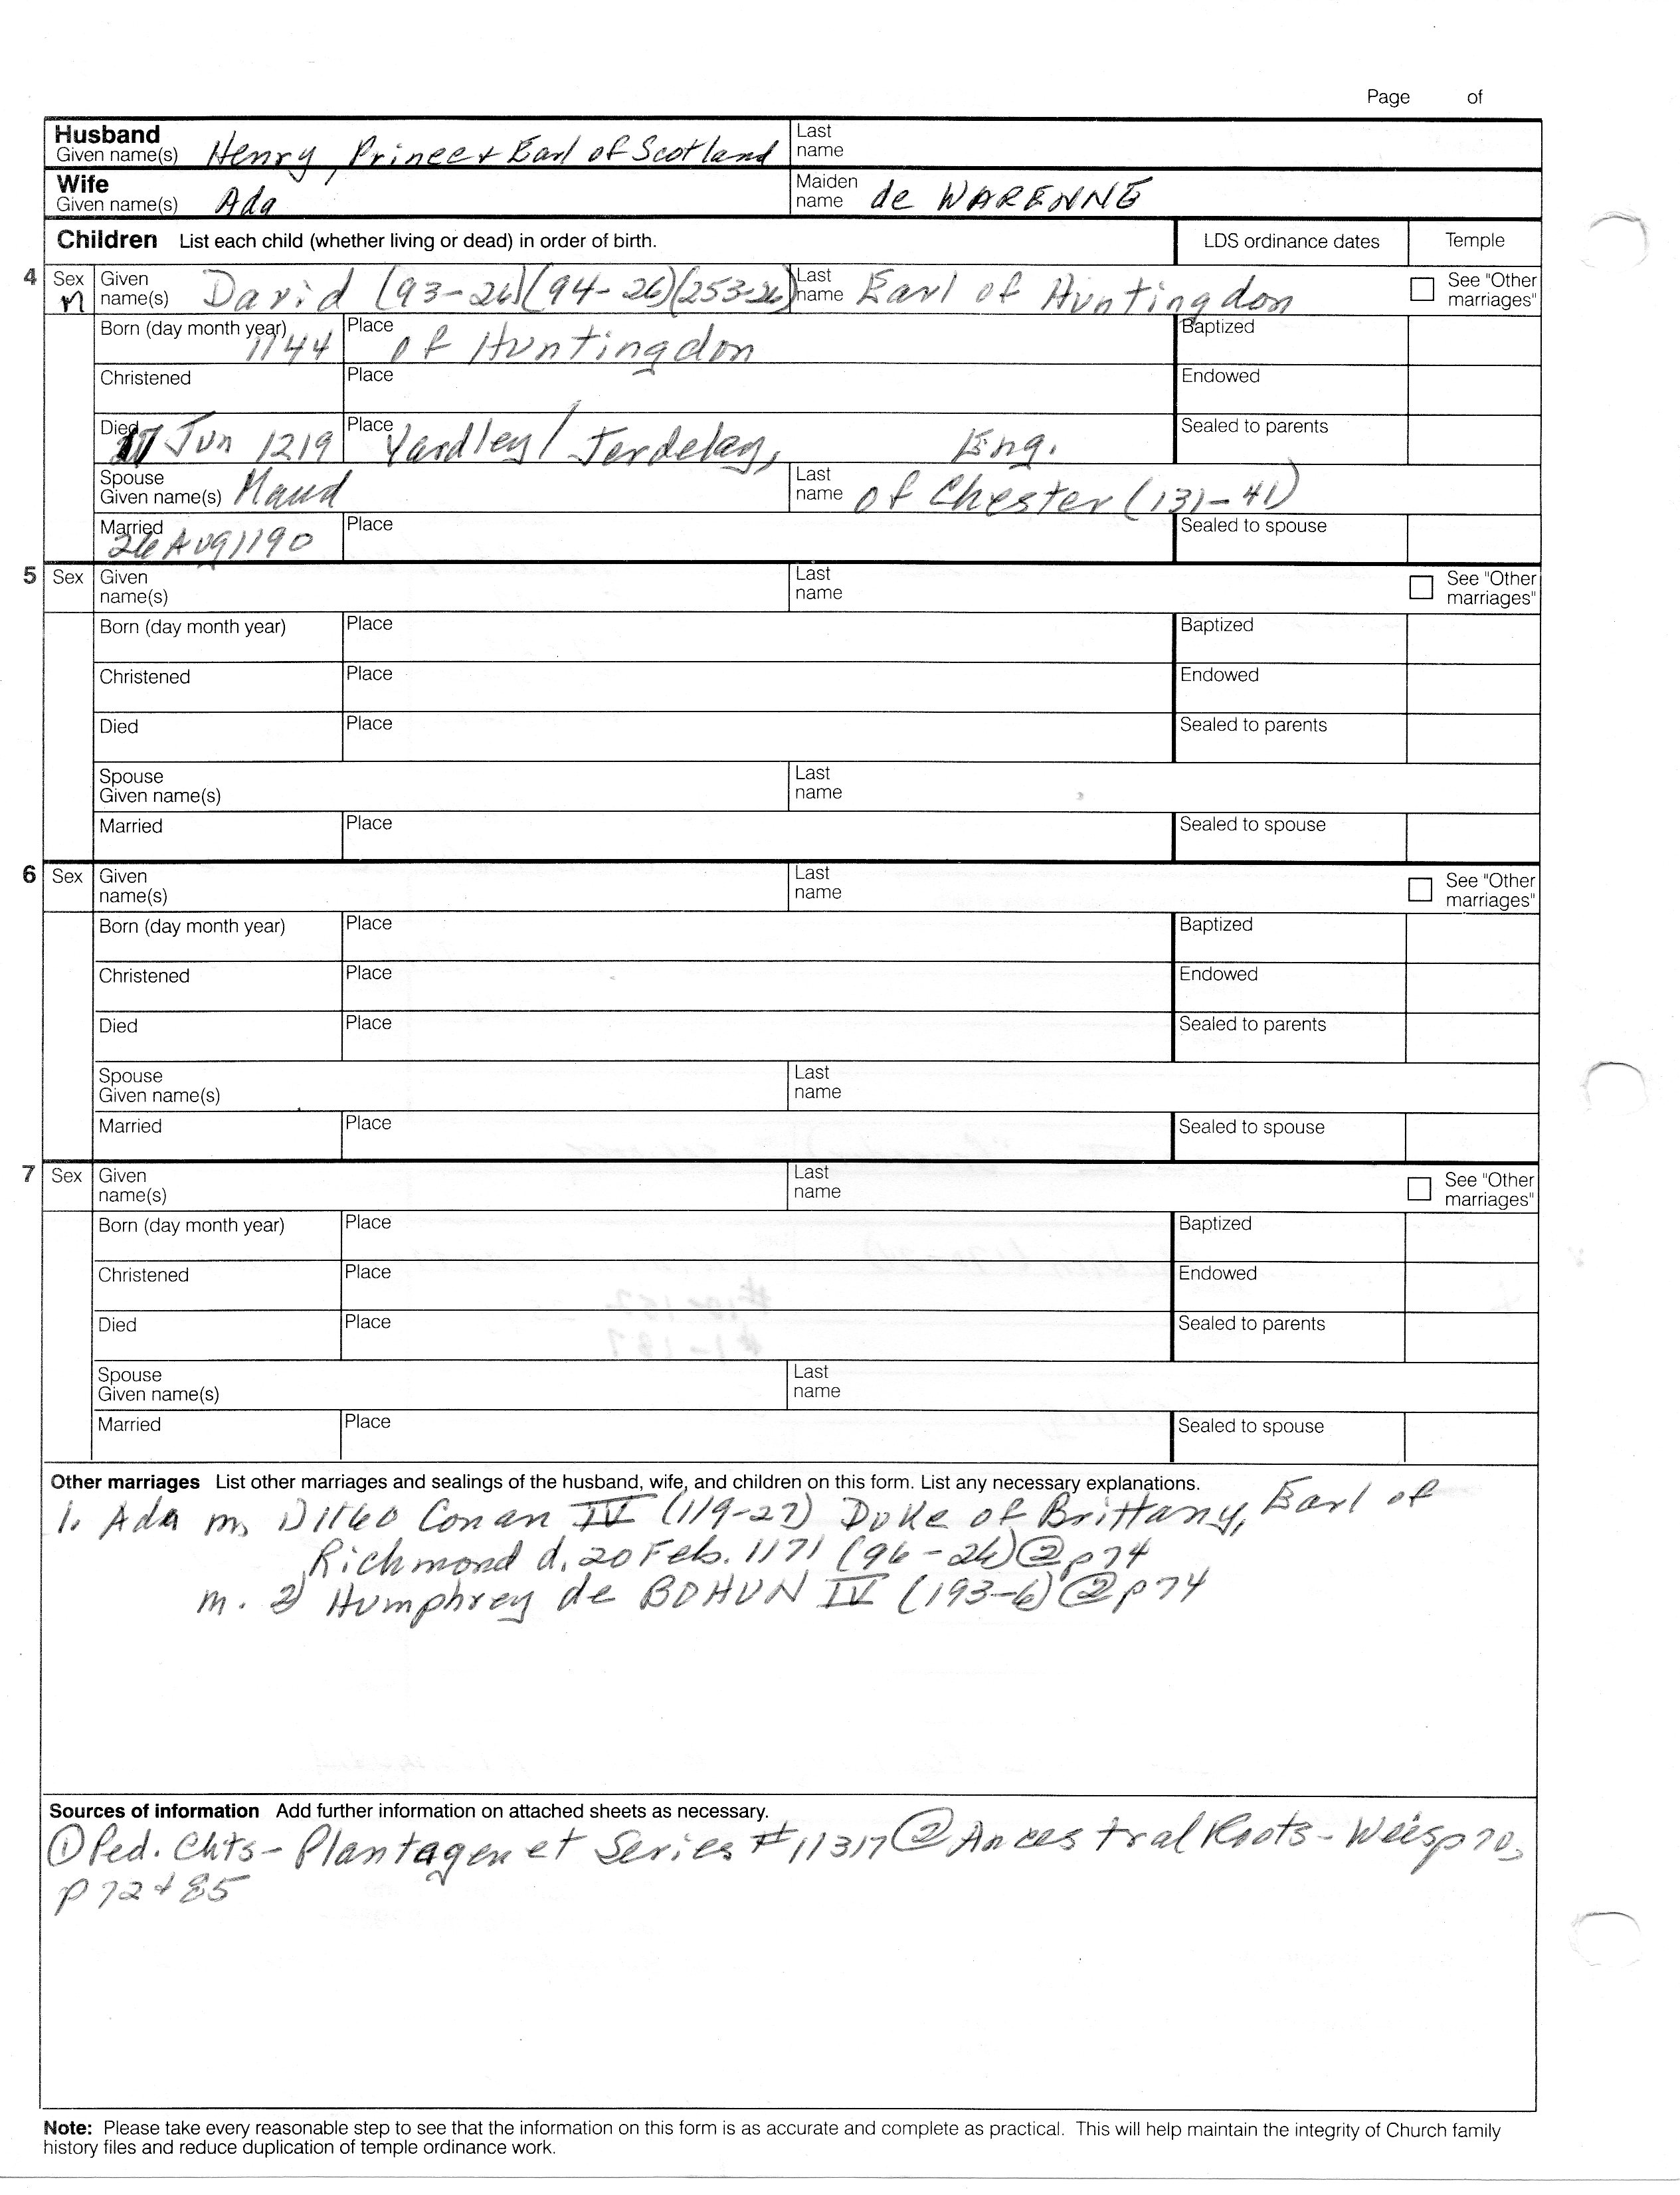 Page of
Husband Given name(s) Henry, Prince + Earl of Scotland Last name
Wife Given name(s) Ada Maiden name de WARENNE
Children List each child (whether living or dead) in order of birth. LDS ordinance dates Temple
4 Sex M Given name(s) David (93-26)(94-26)(253-26) Last name Earl of Huntingdon See "Other marriages"
Born (day month year) 1144 Place of Huntingdon Baptized
Christened Place Endowed
Died Jun 1219 Place Yardley/Jerdelay, Eng. Sealed to parents
Spouse Given name(s) Maud Last name of Chester (131-41)
Married 26 Aug 1190 Place Sealed to spouse
5 Sex Given name(s) Last name See "Other marriages"
Born (day month year) Place Baptized
Christened Place Endowed
Died Place Sealed to parents
Spouse Given name(s) Last name
Married Place Sealed to spouse
6 Sex Given name(s) Last name See "Other marriages"
Born (day month year) Place Baptized
Christened Place Endowed
Died Place Sealed to parents
Spouse Given name(s) Last name
Married Place Sealed to spouse
7 Sex Given name(s) Last name See "Other marriages"
Born (day month year) Place Baptized
Christened Place Endowed
Died Place Sealed to parents
Spouse Given name(s) Last name
Married Place Sealed to spouse
Other marriages List other marriages and sealings of the husband, wife, and children on this form. List any necessary explanations.
1. Ada m. 1) 1160 Conan IV (119-27) Duke of Brittany, Earl of
Richmond d. 20 Feb. 1171 (96-26) ② p74
m. 2) Humphrey de BOHUN IV (193-6) ② p74
Sources of information Add further information on attached sheets as necessary.
① Ped. Chts - Plantagenet Series #11317 ② Ancestral Roots - Weis p70,
p72 + 85
Note: Please take every reasonable step to see that the information on this form is as accurate and complete as practical. This will help maintain the integrity of Church family
history files and reduce duplication of temple ordinance work.